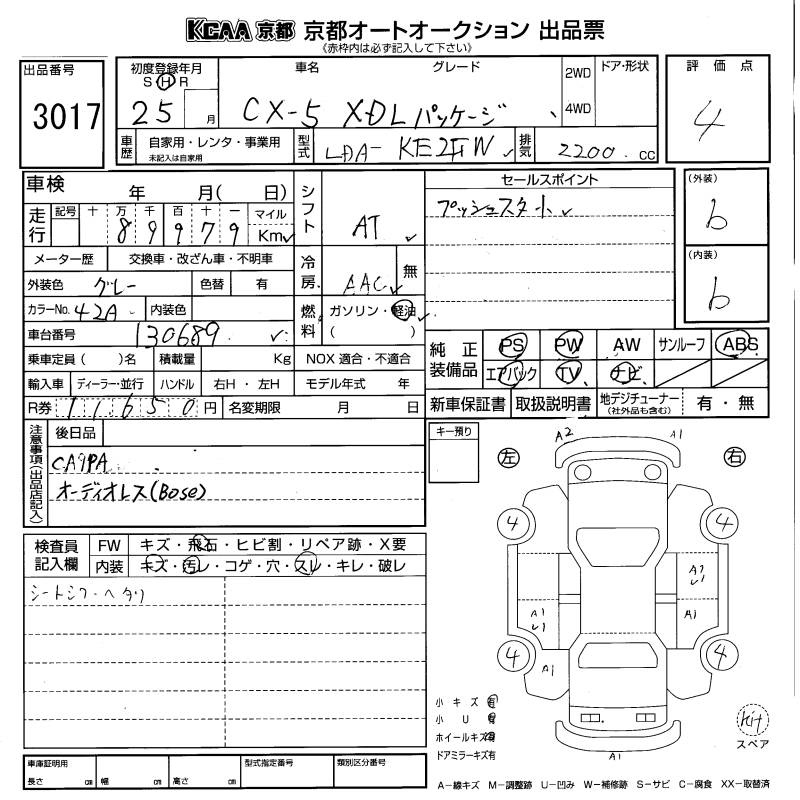 KCAA 京都 京都オートオークション 出品票
《赤枠内は必ず記入して下さい》
出品番号
3017
初度登録年月
S H R
25 月
車名 グレード
CX-5 XDLパッケージ
2WD
4WD
ドア・形状
評価点
4
車歴
自家用・レンタ・事業用
未記入は自家用
型式
LDA-KE2FW
排気
2200 cc
車検
年 月( 日)
走行
記号 十 万 千 百 十 一 マイル
8 9 9 7 9 Km
メーター歴 交換車・改ざん車・不明車
外装色 グレー 色替 有
カラーNo. 42A 内装色
車台番号 130689
乗車定員( )名 積載量 Kg NOX 適合・不適合
輸入車 ディーラー・並行 ハンドル 右H・左H モデル年式 年
R券 11650 円 名変期限 月 日
シフト
AT
冷房
AAC
無
燃料
ガソリン・軽油
( )
セールスポイント
プッシュスタート
(外装)
b
(内装)
b
純正装備品
PS PW AW サンルーフ ABS
エアバック TV ナビ
新車保証書 取扱説明書 地デジチューナー
(社外品も含む) 有・無
注意事項(出品店記入)
後日品
オーディオレス(BOSE)
キー預り
A2 A1
左 右
4 4
A1
A1
A1
4 4
A1
A1
検査員記入欄
FW キズ・飛石・ヒビ割・リペア跡・X要
内装 キズ・汚レ・コゲ・穴・スレ・キレ・破レ
シートシワ・ヘタリ
小キズ有
小U有
ホイールキズ有
ドアミラーキズ有
Kit
スペア
車庫証明用
長さ cm 幅 cm 高さ cm
型式指定番号
類別区分番号
A－線キズ M－調整跡 U－凹み W－補修跡 S－サビ C－腐食 XX－取替済